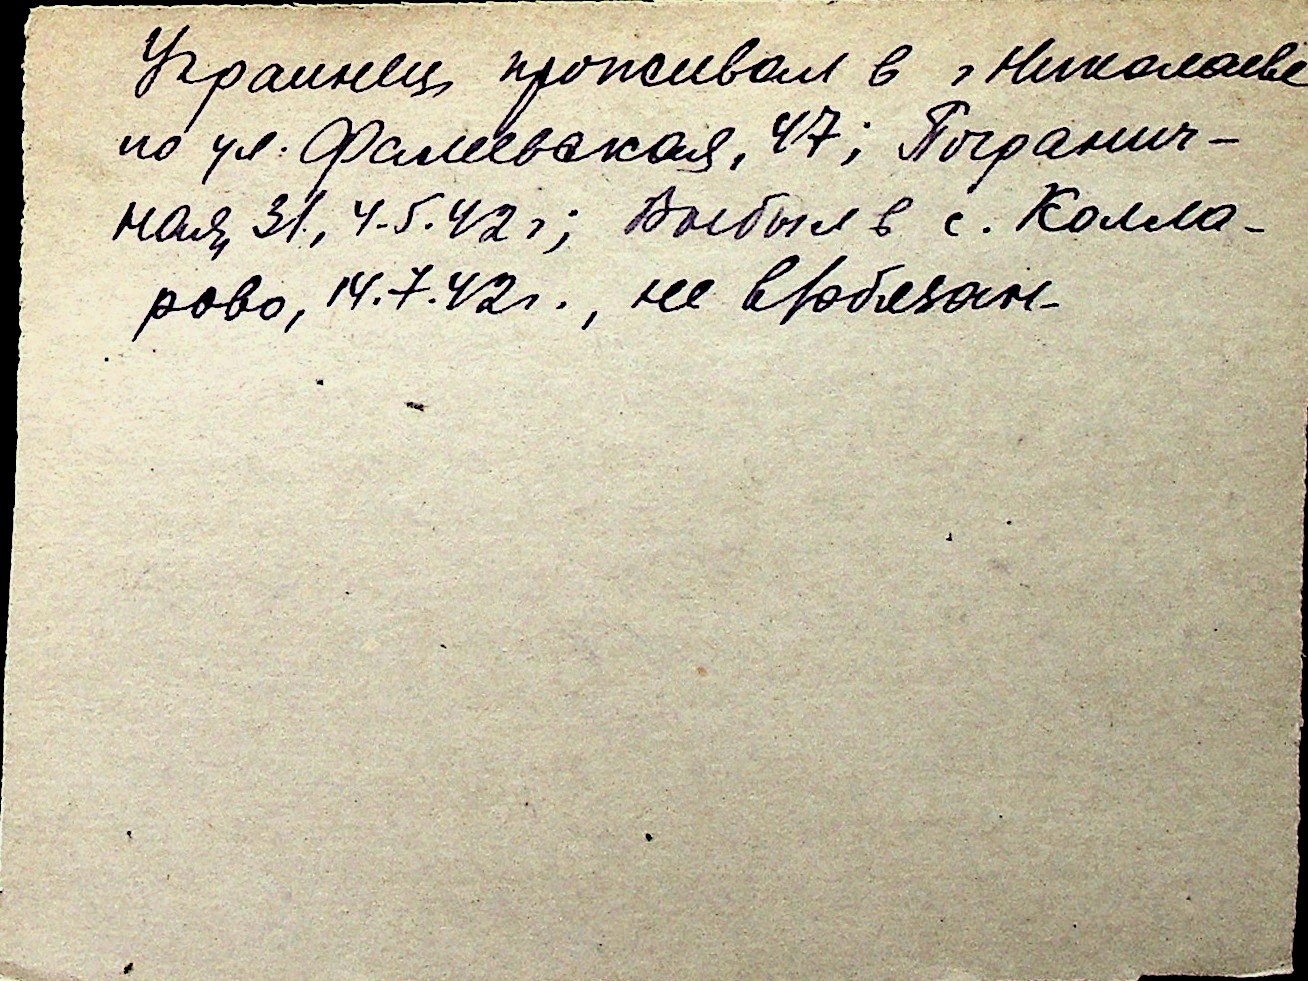 Украинец проживал в г. Николаеве
по ул. Фалеевская, 47; Погранич-
ная, 31, 4.5.42 г; Выбыл в с. Колла-
рово, 14.7.42 г., не в/обязан-